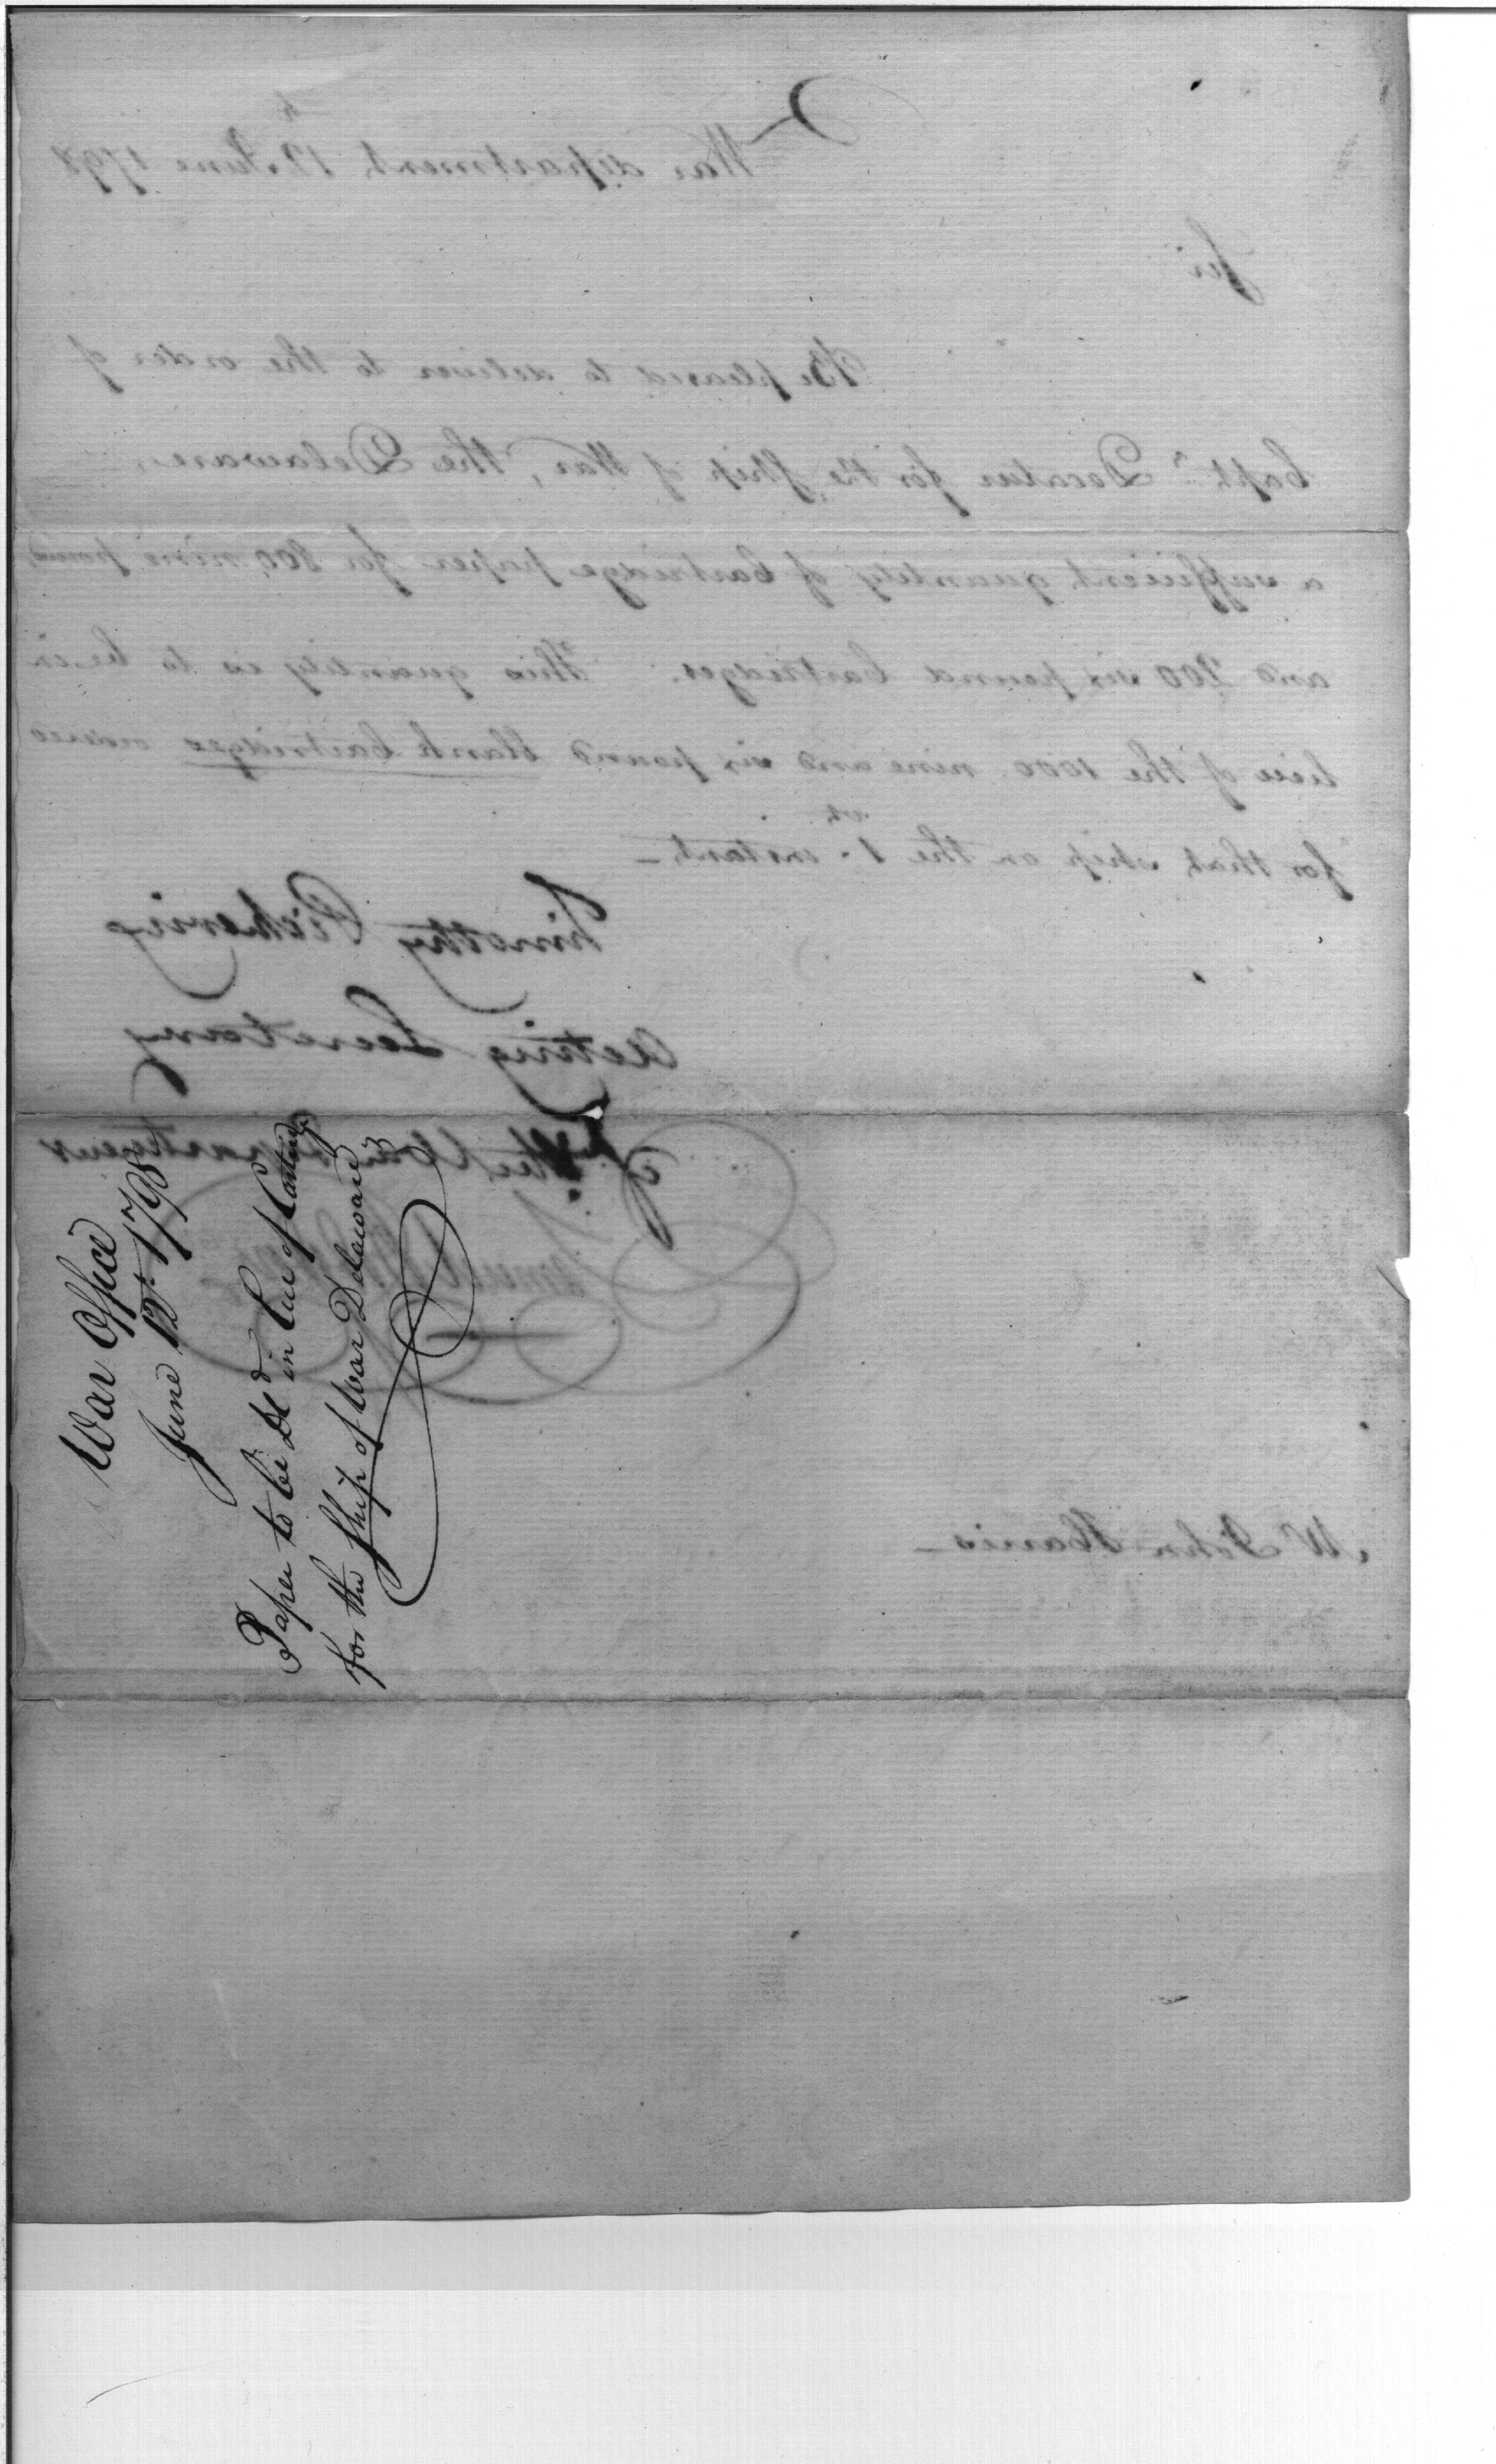 War department 12th June 1798
Sir
Be pleased to deliver to the order of
Captn Decatur for the Ship of War, the Delaware,
a sufficient quantity of Cartridge paper for 800 nine pound,
and 200 six pound Cartridges. This quantity is to be in
lieu of the 1000 nine and six pound blank Cartridges ordered
for that ship on the 1st instant.—
Timothy Pickering
Acting Secretary
of the War Department
Mr John Harris —
War Office
June 12th 1798
Paper to be Dd in lieu of Cartridge
for the Ship of War Delaware